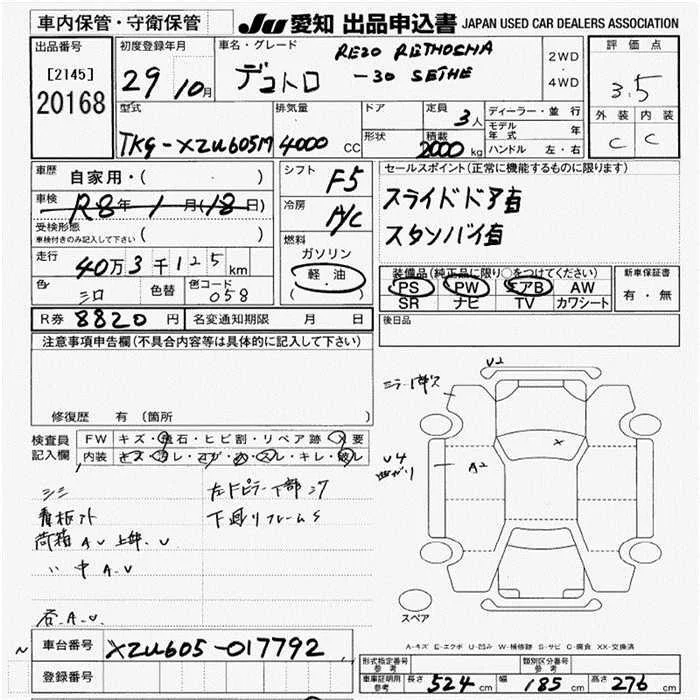 車内保管・守衛保管
JU 愛知 出品申込書 JAPAN USED CAR DEALERS ASSOCIATION
出品番号
[2145]
20168
初度登録年月
29 10月
車名・グレード
デュトロ
-30
2WD
・
4WD
評価点
3.5
外装 内装
C C
型式
TKG-XZU605M
排気量
4000 CC
ドア
形状
定員
3人
積載
2000 kg
ディーラー・並行
モデル年式 年
ハンドル 左・右
車歴
自家用・( )
車検
R8年 1月(18日)
受検形態
車検付きのみ記入して下さい ( )
走行
40万3千125km
色
シロ
色替
色コード
058
シフト
F5
冷房
A/C
燃料
ガソリン
軽・油
( )
セールスポイント(正常に機能するものに限ります)
スライドドア有
スタンバイ有
装備品(純正品に限り○をつけてください)
PS PW エアB AW
SR ナビ TV カワシート
新車保証書
有・無
R券 8820円 名変通知期限 月 日
後日品
注意事項申告欄(不具合内容等は具体的に記入して下さい)
修復歴 有 (箇所 )
検査員記入欄
FW キズ・飛石・ヒビ割・リペア跡・X要
内装 キズ・汚レ・コゲ・穴・スレ・キレ・破レ
シミ
看板ナト
荷箱 A U 上部 U
〃 中 A.U
左Fピラー下部
下廻りフレームS
各.A.U.
ミラーキズ
U2
U4
曲がり
A2
X
スペア
A-キズ E-エクボ U-凹み W-補修跡 S-サビ C-腐食 XX-交換済
車台番号 XZU605-017792
登録番号
形式指定番号 参考
類別区分番号 参考
車庫証明用 参考 長さ 524 cm 幅 185 cm 高さ 276 cm